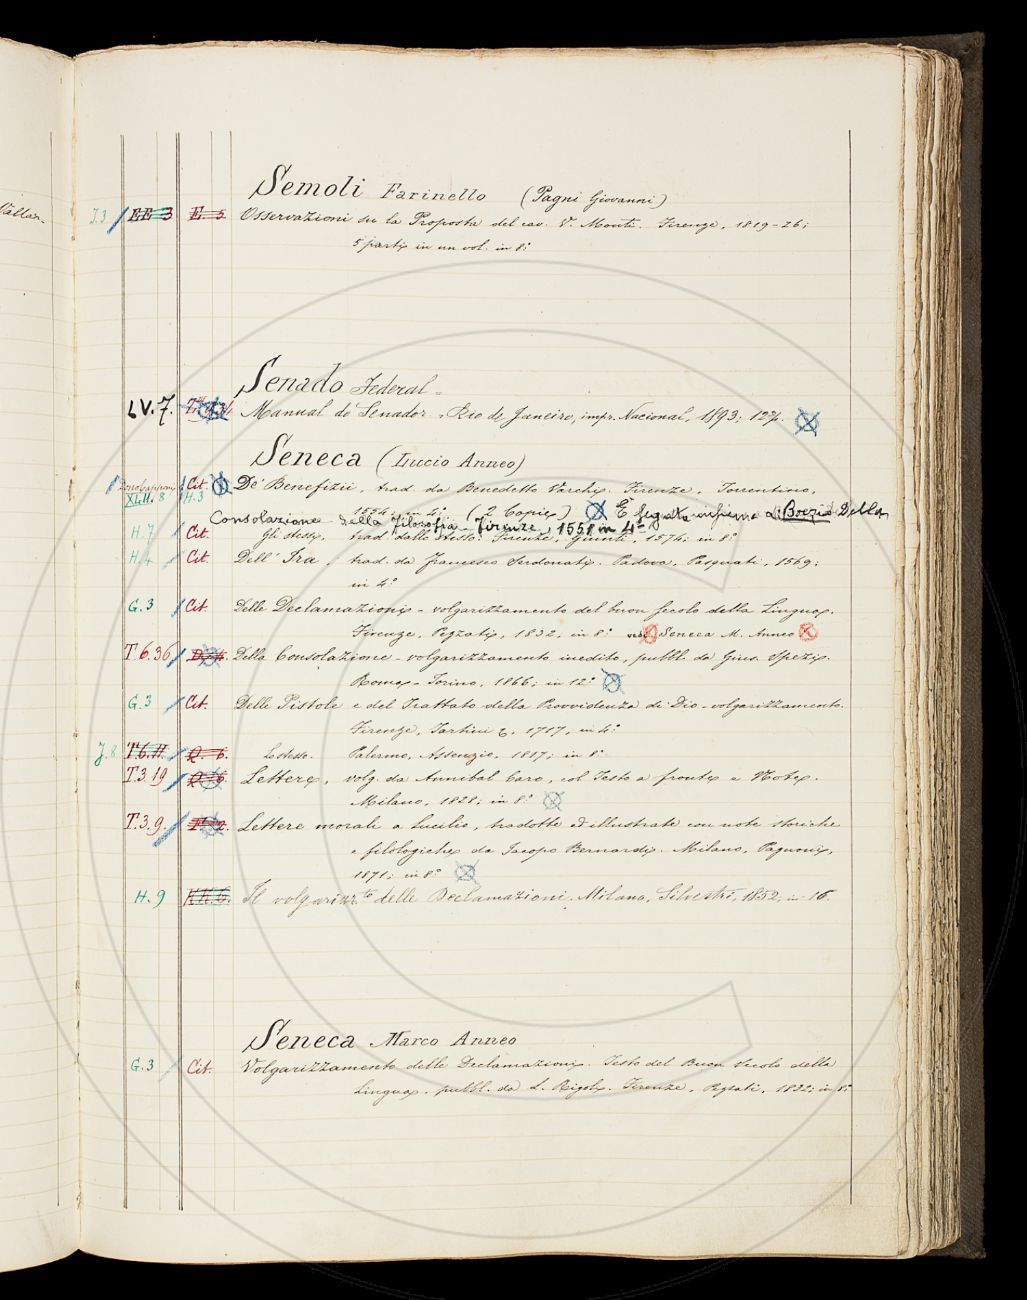 Semoli Farinello (Pagni Giovanni)
J.3 EE 3 E. 5. Osservazioni su la Proposta del cav. V. Monti. Firenze, 1819-26;
5 parti in un vol. in 8.°
Senado Federal
LV. 7. Manual do Senador. Rio de Janeiro, impr. Nacional, 1893; 127.
Seneca (Lucio Anneo)
Cit. De' Benefizii, trad. da Benedetto Varchi. Firenze, Torrentino,
XLII. 8 H.3
1554; in 4.° (2 Copie) È legato insieme a: Boezio Della
Consolazione della filosofia - Firenze, 1551 in 4°
H.7 Cit. Gli stessi, trad. dallo stesso. Firenze, Giunti, 1574; in 8.°
H.4 Cit. Dell' Ira, trad. da Francesco Serdonati. Padova, Pasquati, 1569;
in 4.°
G.3 Cit. Delle Declamazioni - volgarizzamento del buon secolo della Lingua.
Firenze, Pezzati, 1832, in 8.° vedi Seneca M. Anneo
T.6.36 Della Consolazione - volgarizzamento inedito, pubbl. da Gius. Spezi.
Roma - Torino, 1866; in 12.°
G.3 Cit. Delle Pistole e del Trattato della Provvidenza di Dio - volgarizzamento.
Firenze, Tartini 1717, in 4.°
J.8 T.6.11 Q. 5. Lo stesso. Palermo, Assenzio, 1817; in 8.°
T.3.19 Q. 6. Lettere, volg. da Annibal Caro, col Testo a fronte e Note.
Milano, 1828; in 8.°
T.3.9. Lettere morali a Lucilio, tradotte ed illustrate con note storiche
e filologiche da Jacopo Bernardi. Milano, Pagnoni,
1871; in 8.°
H.9 Il volgarizz.to delle Declamazioni. Milano, Silvestri, 1852, in 16.
Seneca Marco Anneo
G.3 Cit. Volgarizzamento delle Declamazioni. Testo del Buon Secolo della
Lingua. pubbl. da L. Rigoli. Firenze, Pezzati, 1832; in 8.°